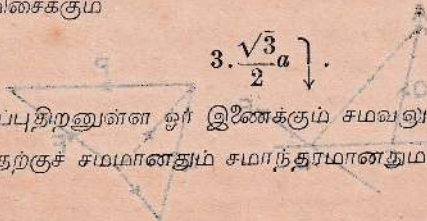 விசைக்கும்
3. \frac{\sqrt{3}}{2}a ⤵.
ப்புதிறனுள்ள ஓர் இணைக்கும் சமவலு
தற்குச் சமமானதும் சமாந்தரமானதும